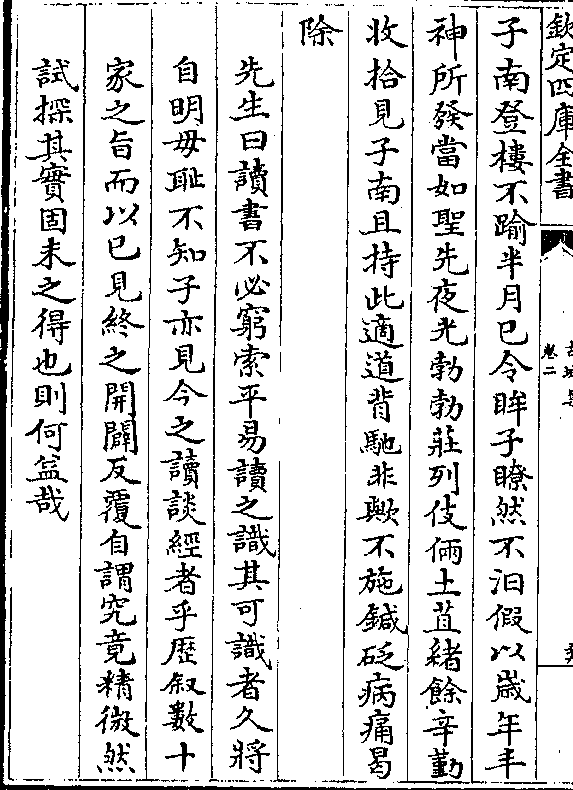 欽定四庫全書
卷二
子南登樓不踰半月已令眸子瞭然不汩假以歲年丰
神所發當如聖先夜光勃勃莊列伎倆土苴緒餘辛勤
收拾見子南且持此適道背馳非歟不施鍼砭病痛曷
除
先生曰讀書不必窮索平易讀之識其可識者久將
自明毋恥不知子亦見今之讀談經者乎歷叙數十
家之旨而以已見終之開闢反覆自謂究竟精微然
試探其實固未之得也則何益哉